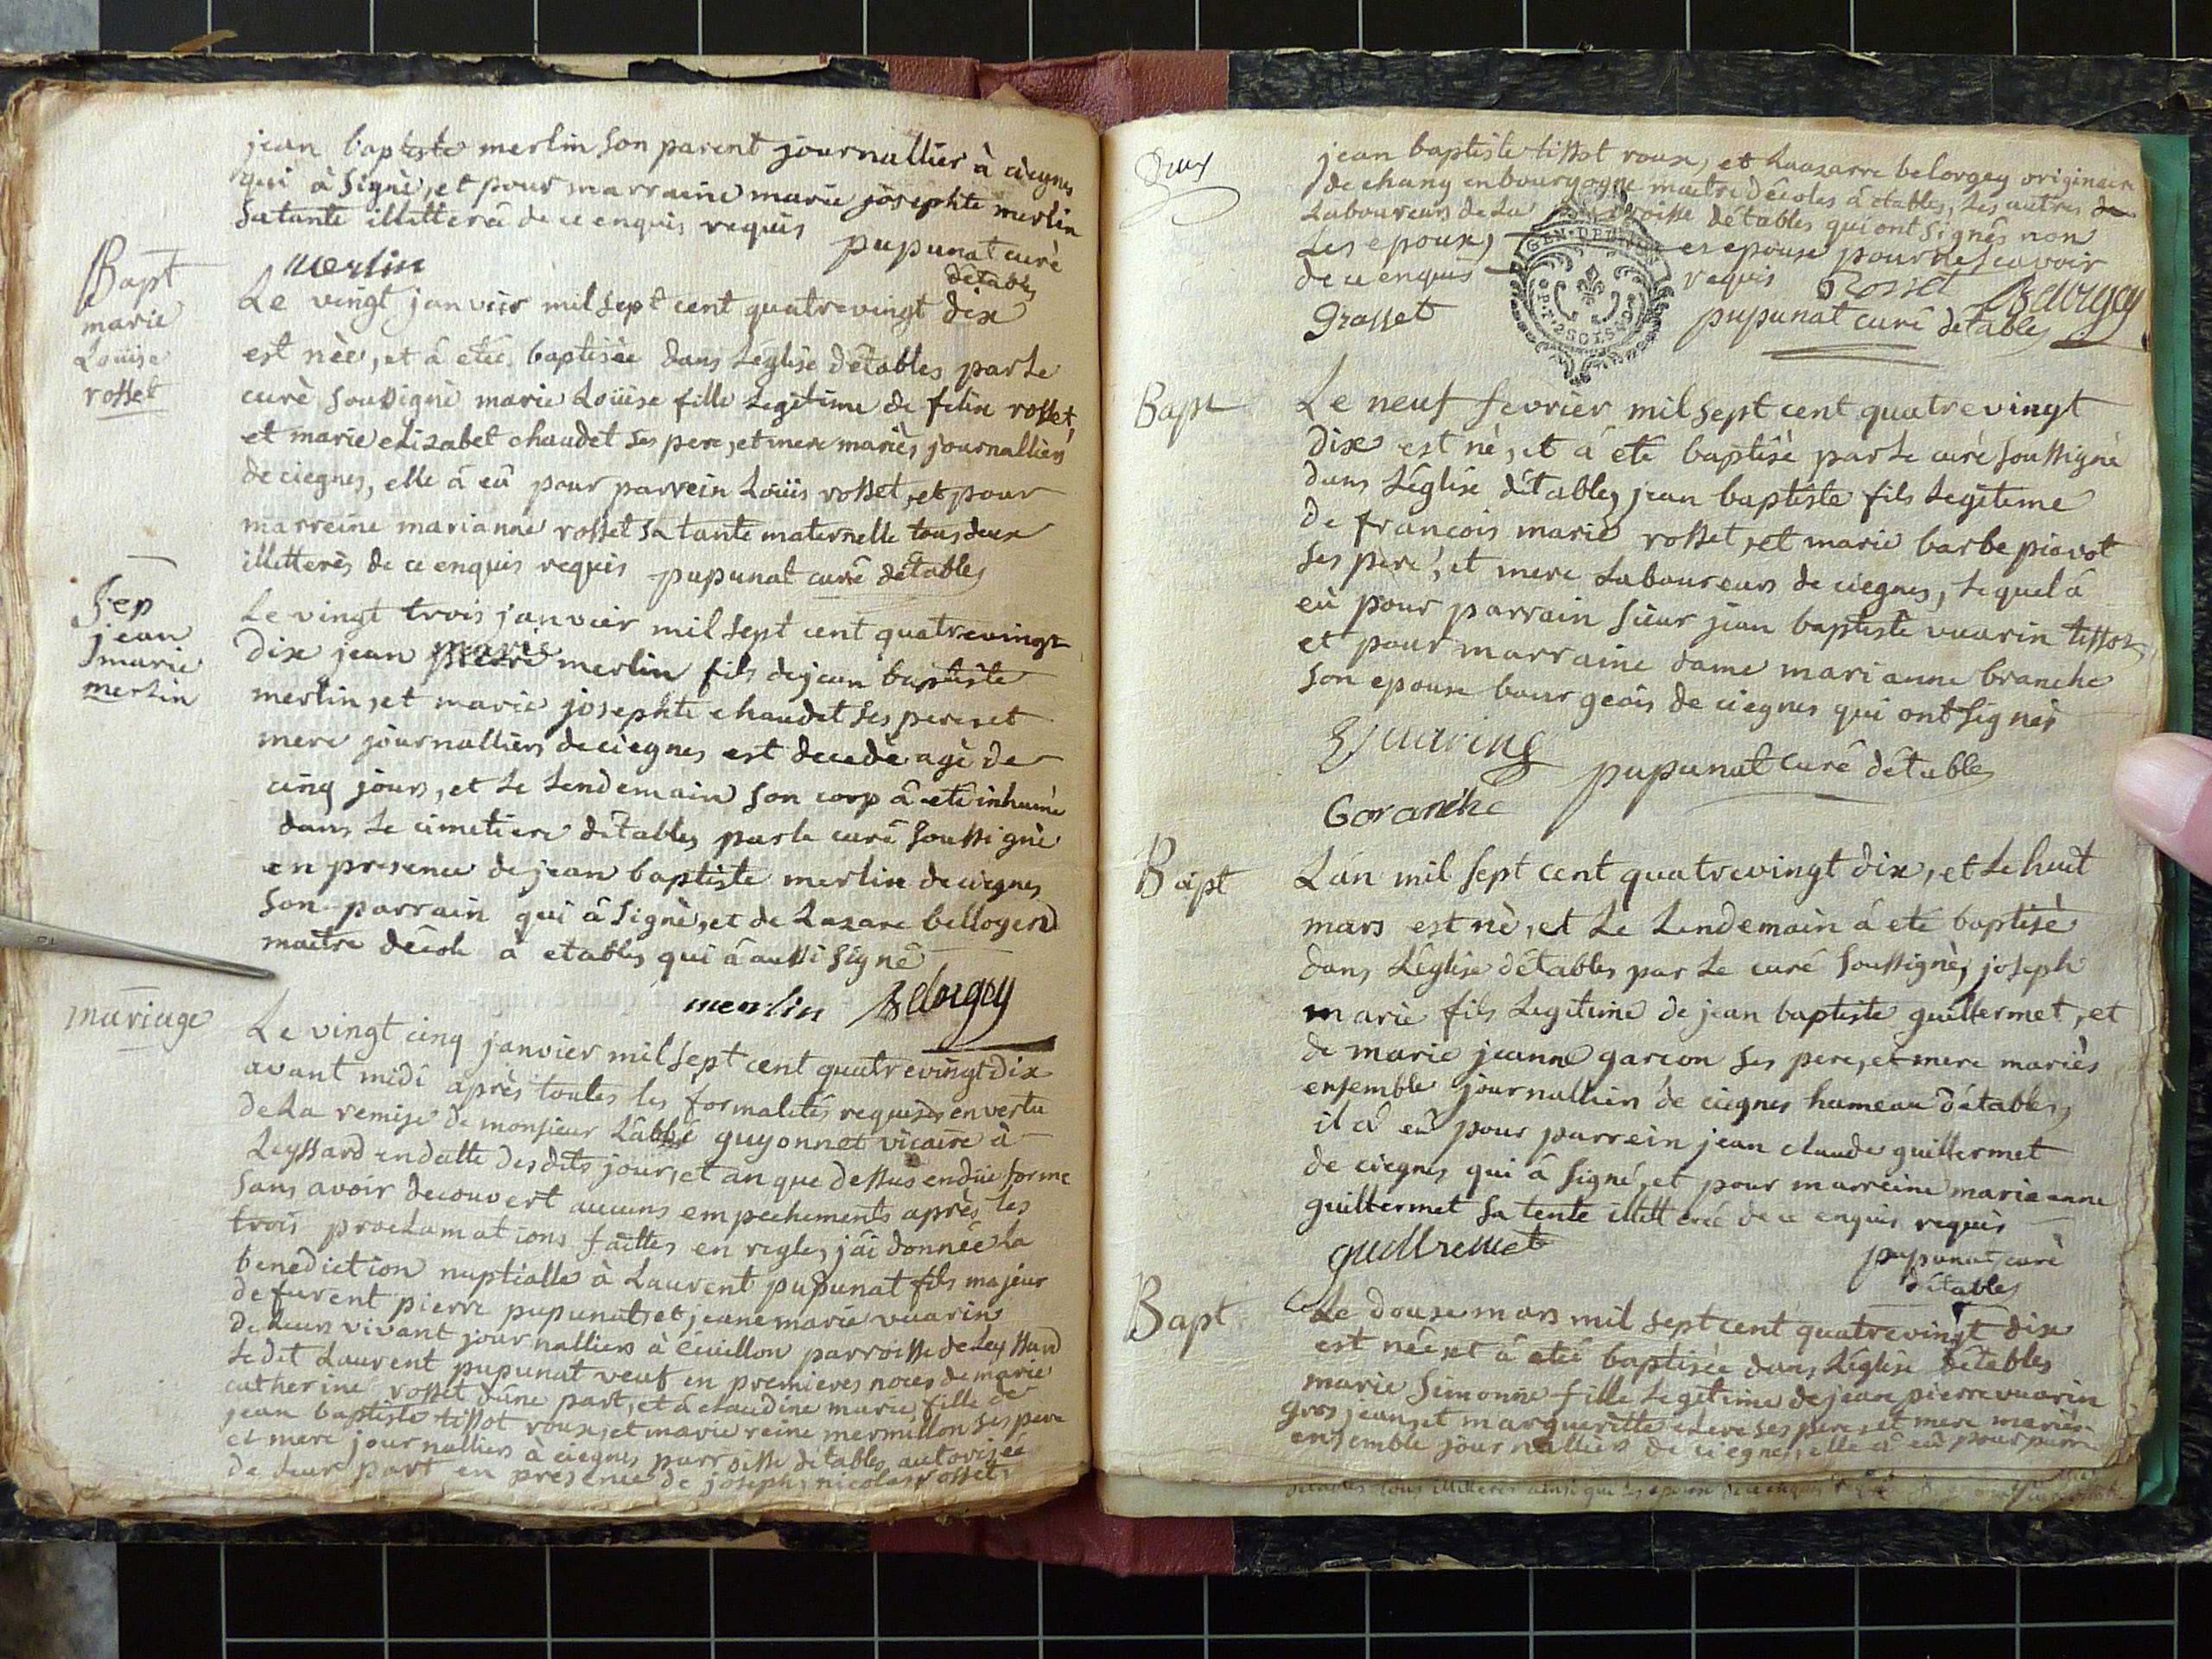 jean baptiste merlin son parent journallier à ciegnes
qui à signè, et pour marraine marie josephte merlin
sa tante illitterée de ce enquis requis pupunat curè
merlin détables
Bapt
marie
Loüise
rosset
Le vingt janvier mil sept cent quatrevingt dix
est nèe, et â etée baptisée dans Léglise détables par Le
curè soussigné marie Loüise fille Legitime de felix rosset,
et marie elizabet chaudet ses pere, et mere mariés journalliers
de ciegnes, elle â eû pour parrein Loüis rosset, et pour
marreine marianne rosset sa tante maternelle tous deux
illitterés de ce enquis requis pupunat curé détables
Sep
jean
marie
merlin
Le vingt trois janvier mil sept cent quatrevingt
dix jean marie merlin fils de jean baptiste
merlin, et marie josephte chaudet ses pere, et
mere journalliers de ciegnes est decedè agè de
cinq jours, et Le Lendemain son corp â eté inhumé
dans Le cimetiere détables par le curé soussigné
en presence de jean baptiste merlin de ciegnes
son parrain qui â signè, et de Lazare bellogerd
maitre décole à etables qui â aussi signé
merlin Belorgey
mariage
Le vingt cinq janvier mil sept cent quatrevingt dix
avant midi après toutes les formalités requises en vertu
de La remise de monsieur Lâbbé guyonnet vicaire à
Leyssard en datte des dits jour, et an que dessus en düe forme
sans avoir decouvert aucuns empechements après les
trois proclamations faittes en regle, jâi donnée La
benediction nuptialle à Laurent pupunat fils majeur
de furent pierre pupunat, et jeane marie vuarin
de Leurs vivant journalliers à Cüillon parroisse de Leyssard
Le dit Laurent pupunat veuf en premieres noces de marie
catherine rosset dûne part, et â claudine marie fille de
jean baptiste tissot roux, et marie reine mermillon ses pere
et mere journalliers à ciegnes parroisse détables autorisée
de Leur part en presence de joseph, nicolas rosset
Deux
jean baptiste tissot roux, et Laazarre belorgey originaire
de chany en bourgogne maitre décoles â etables, Les autres
Laboureurs de La parroisse détables qui ont signés non
Les epoux, es epouse pour ne scavoir
de ce enquis requis Rosset Belorgey
Grasset pupunat curé détables
Bapt
Le neuf fevrier mil sept cent quatrevingt
dix est nè, et â eté baptisè par Le curé soussigné
dans Léglise détables jean baptiste fils Legitime
de francois marie rosset, et marie barbe piovot
ses pere, et mere Laboureurs de ciegnes, Lequel â
eû pour parrain sieur jean baptiste vuarin tissot,
et pour marraine dame marianne branche
son epouse bourgeois de ciegnes qui ont signès
pupunat curé détables
Bapt
Lân mil sept cent quatrevingt dix, et Le huit
mars est nè, et Le Lendemain â eté baptisé
dans Léglise détables par Le curé soussigné, joseph
marie fils Legitime de jean baptiste guillermet, et
de marie jeanne garcon ses pere, et mere mariès
ensemble journalliers de ciegnes hameau détables,
il â eû pour parrein jean claude guillermet
de ciegnes qui â signé, et pour marreine marieanne
guillermet sa tente illitterée de ce enquis requis
guillremet pupunat curé
détables
Bapt
Le douze mars mil sept cent quatrevingt dix
est née, et â etée baptisée dans Léglise détables
marie simonne fille Legitime de jean pierre vuarin
gros jean, et margueritte clere ses pere, et mere mariés
ensemble journalliers de ciegnes, elle â eû pour parre